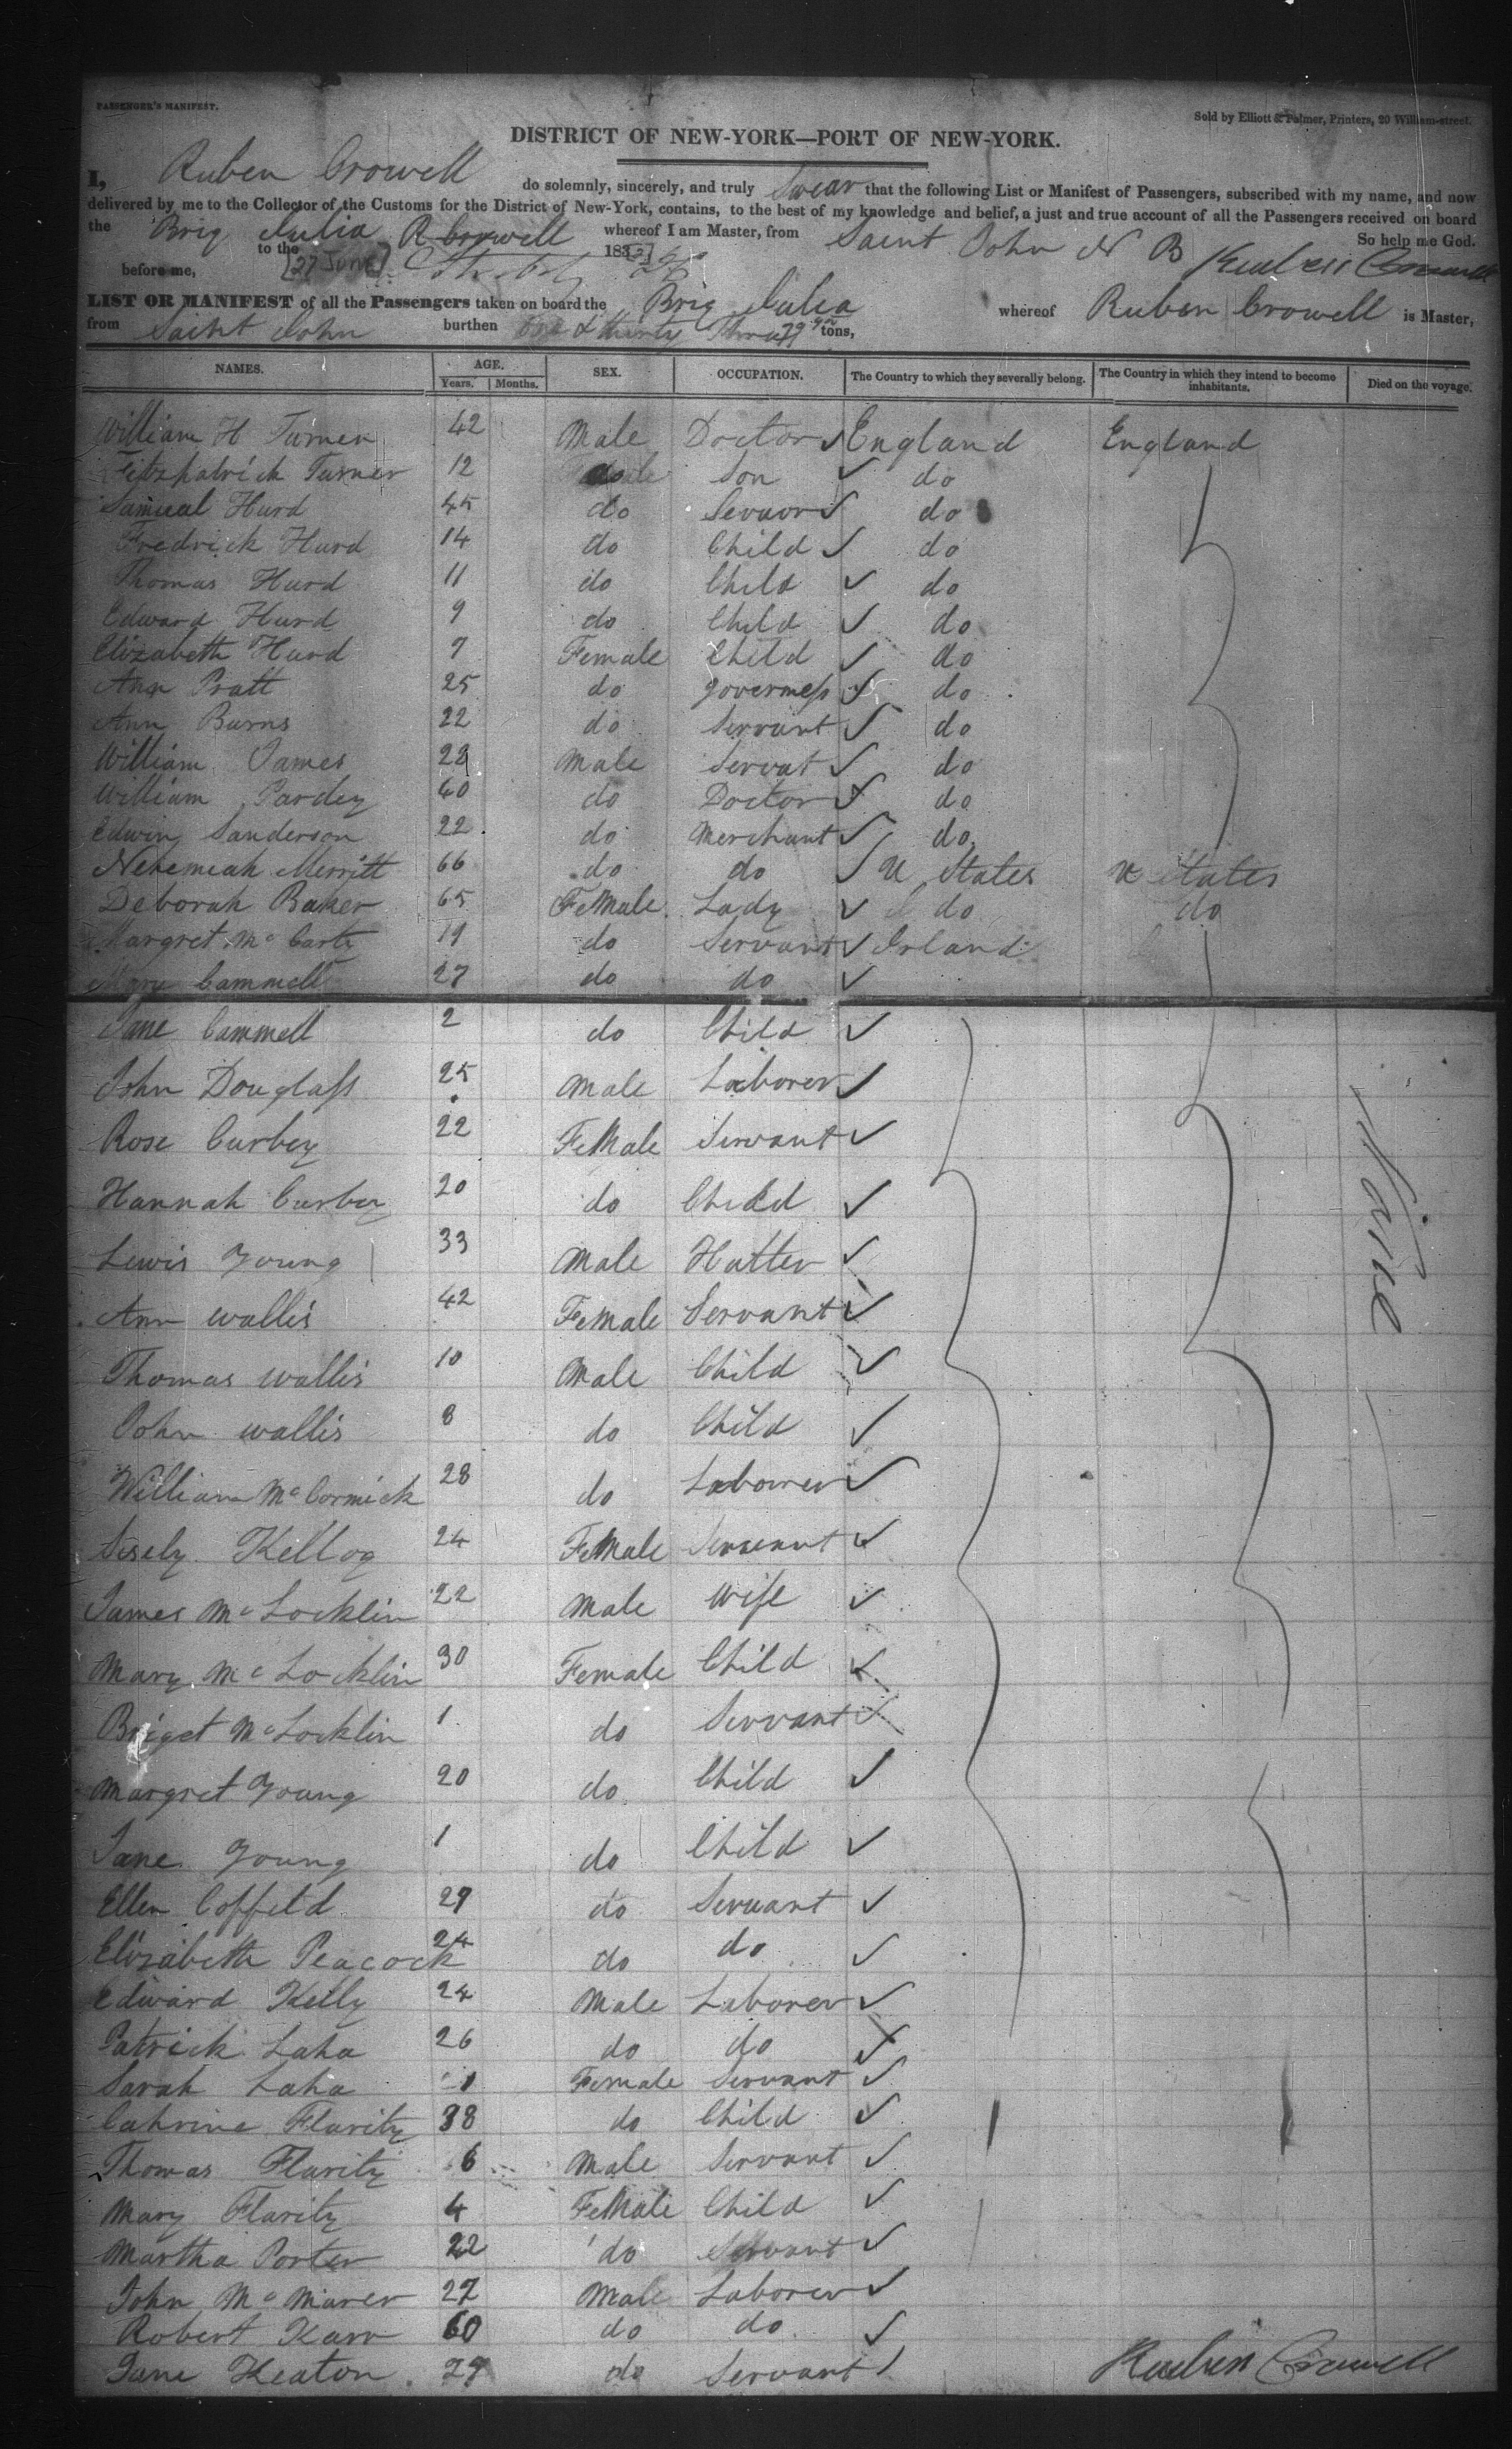 PASSENGER'S MANIFEST.
Sold by Elliott & Palmer, Printers, 20 William-street.
DISTRICT OF NEW-YORK—PORT OF NEW-YORK.
I, Ruben Crowell do solemnly, sincerely, and truly Swear that the following List or Manifest of Passengers, subscribed with my name, and now
delivered by me to the Collector of the Customs for the District of New-York, contains, to the best of my knowledge and belief, a just and true account of all the Passengers received on board
the Brig Julia R Crowell whereof I am Master, from Saint John N B
to the 27 June 183 So help me God.
before me, Reuben Crowell
LIST OR MANIFEST of all the Passengers taken on board the Brig Julia whereof Ruben Crowell is Master,
from Saint John burthen One & thirty Three tons,
NAMES. AGE. SEX. OCCUPATION. The Country to which they severally belong. The Country in which they intend to become inhabitants. Died on the voyage.
Years. Months.
William H Turner 42 Male Doctor England England
Fitzhpatrick Turner 12 do Son do
Samual Hurd 45 do do
Fredrick Hurd 14 do Child do
Thomas Hurd 11 do Child do
Edward Hurd 9 do Child do
Elizabeth Hurd 7 Female Child do
Ann Pratt 25 do governess do
Ann Burns 22 do Servant do
William James 29 Male Servat do
William Pardey 60 do Doctor do
Edwin Sanderson 22 do Merchant do
Nehemiah Merritt 66 do do U States U States
Deborah Baker 65 Female Lady do do
Margret Mc Carty 19 do Servant Irland
Mary Cammell 27 do do
Jane Cammell 2 do Child
John Douglass 25 Male Laborer
Rose Curbey 22 Female Servant
Hannah Curbey 20 do Child
Lewis Young 33 Male Hatter
Ann wallis 42 Female Servant
Thomas wallis 10 Male Child
John wallis 8 do Child
William McCormick 28 do Laborer
Sisely Kellog 24 Female Servant
James Mc Locklin 22 Male Wife
Mary Mc Locklin 30 Female Child
Briget Mc Locklin 1 do Servant
Margret Young 20 do Child
Jane Young 1 do Child
Ellen Coffeld 29 do Servant
Elizabeth Peacock 24 do do
Edward Kelly 24 Male Laborer
Patrick Laha 26 do do
Sarah Laha 1 Female Servant
Cahrine Flarity 38 do Child
Thomas Flarity 6 Male Servant
Mary Flarity 4 Female Child
Martha Porter 22 do Servant
John Mc Marer 27 Male Laborer
Robert Karr 60 do do
Jane Keaton 29 do Servant
None
Reuben Crowell